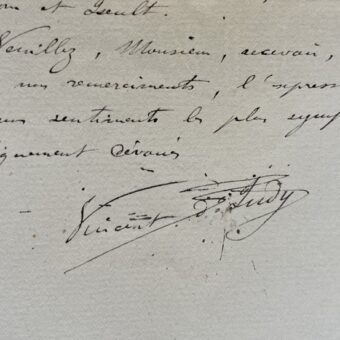 et Iseult.
Veuillez, Monsieur, recevoir,
nos remerciements, l'express
sentiments les plus symp
dévoués
Vincent d'Indy